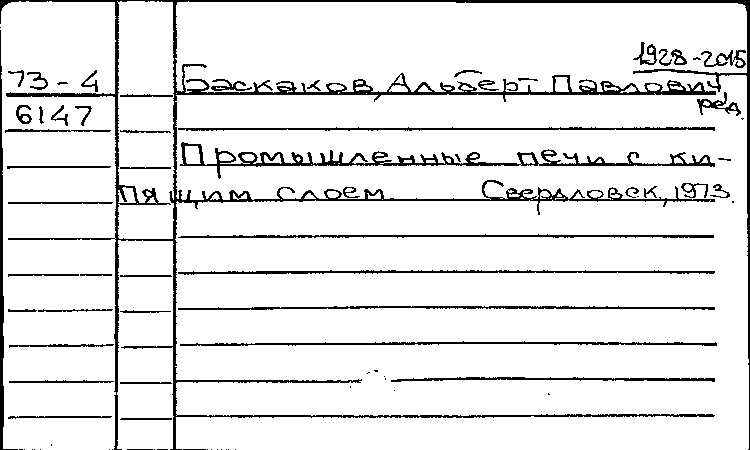 1928-2015
73-4 Баскаков, Альберт Павлович,
6147 ред.
Промышленные печи с ки-
пящим слоем. Свердловск, 1973.